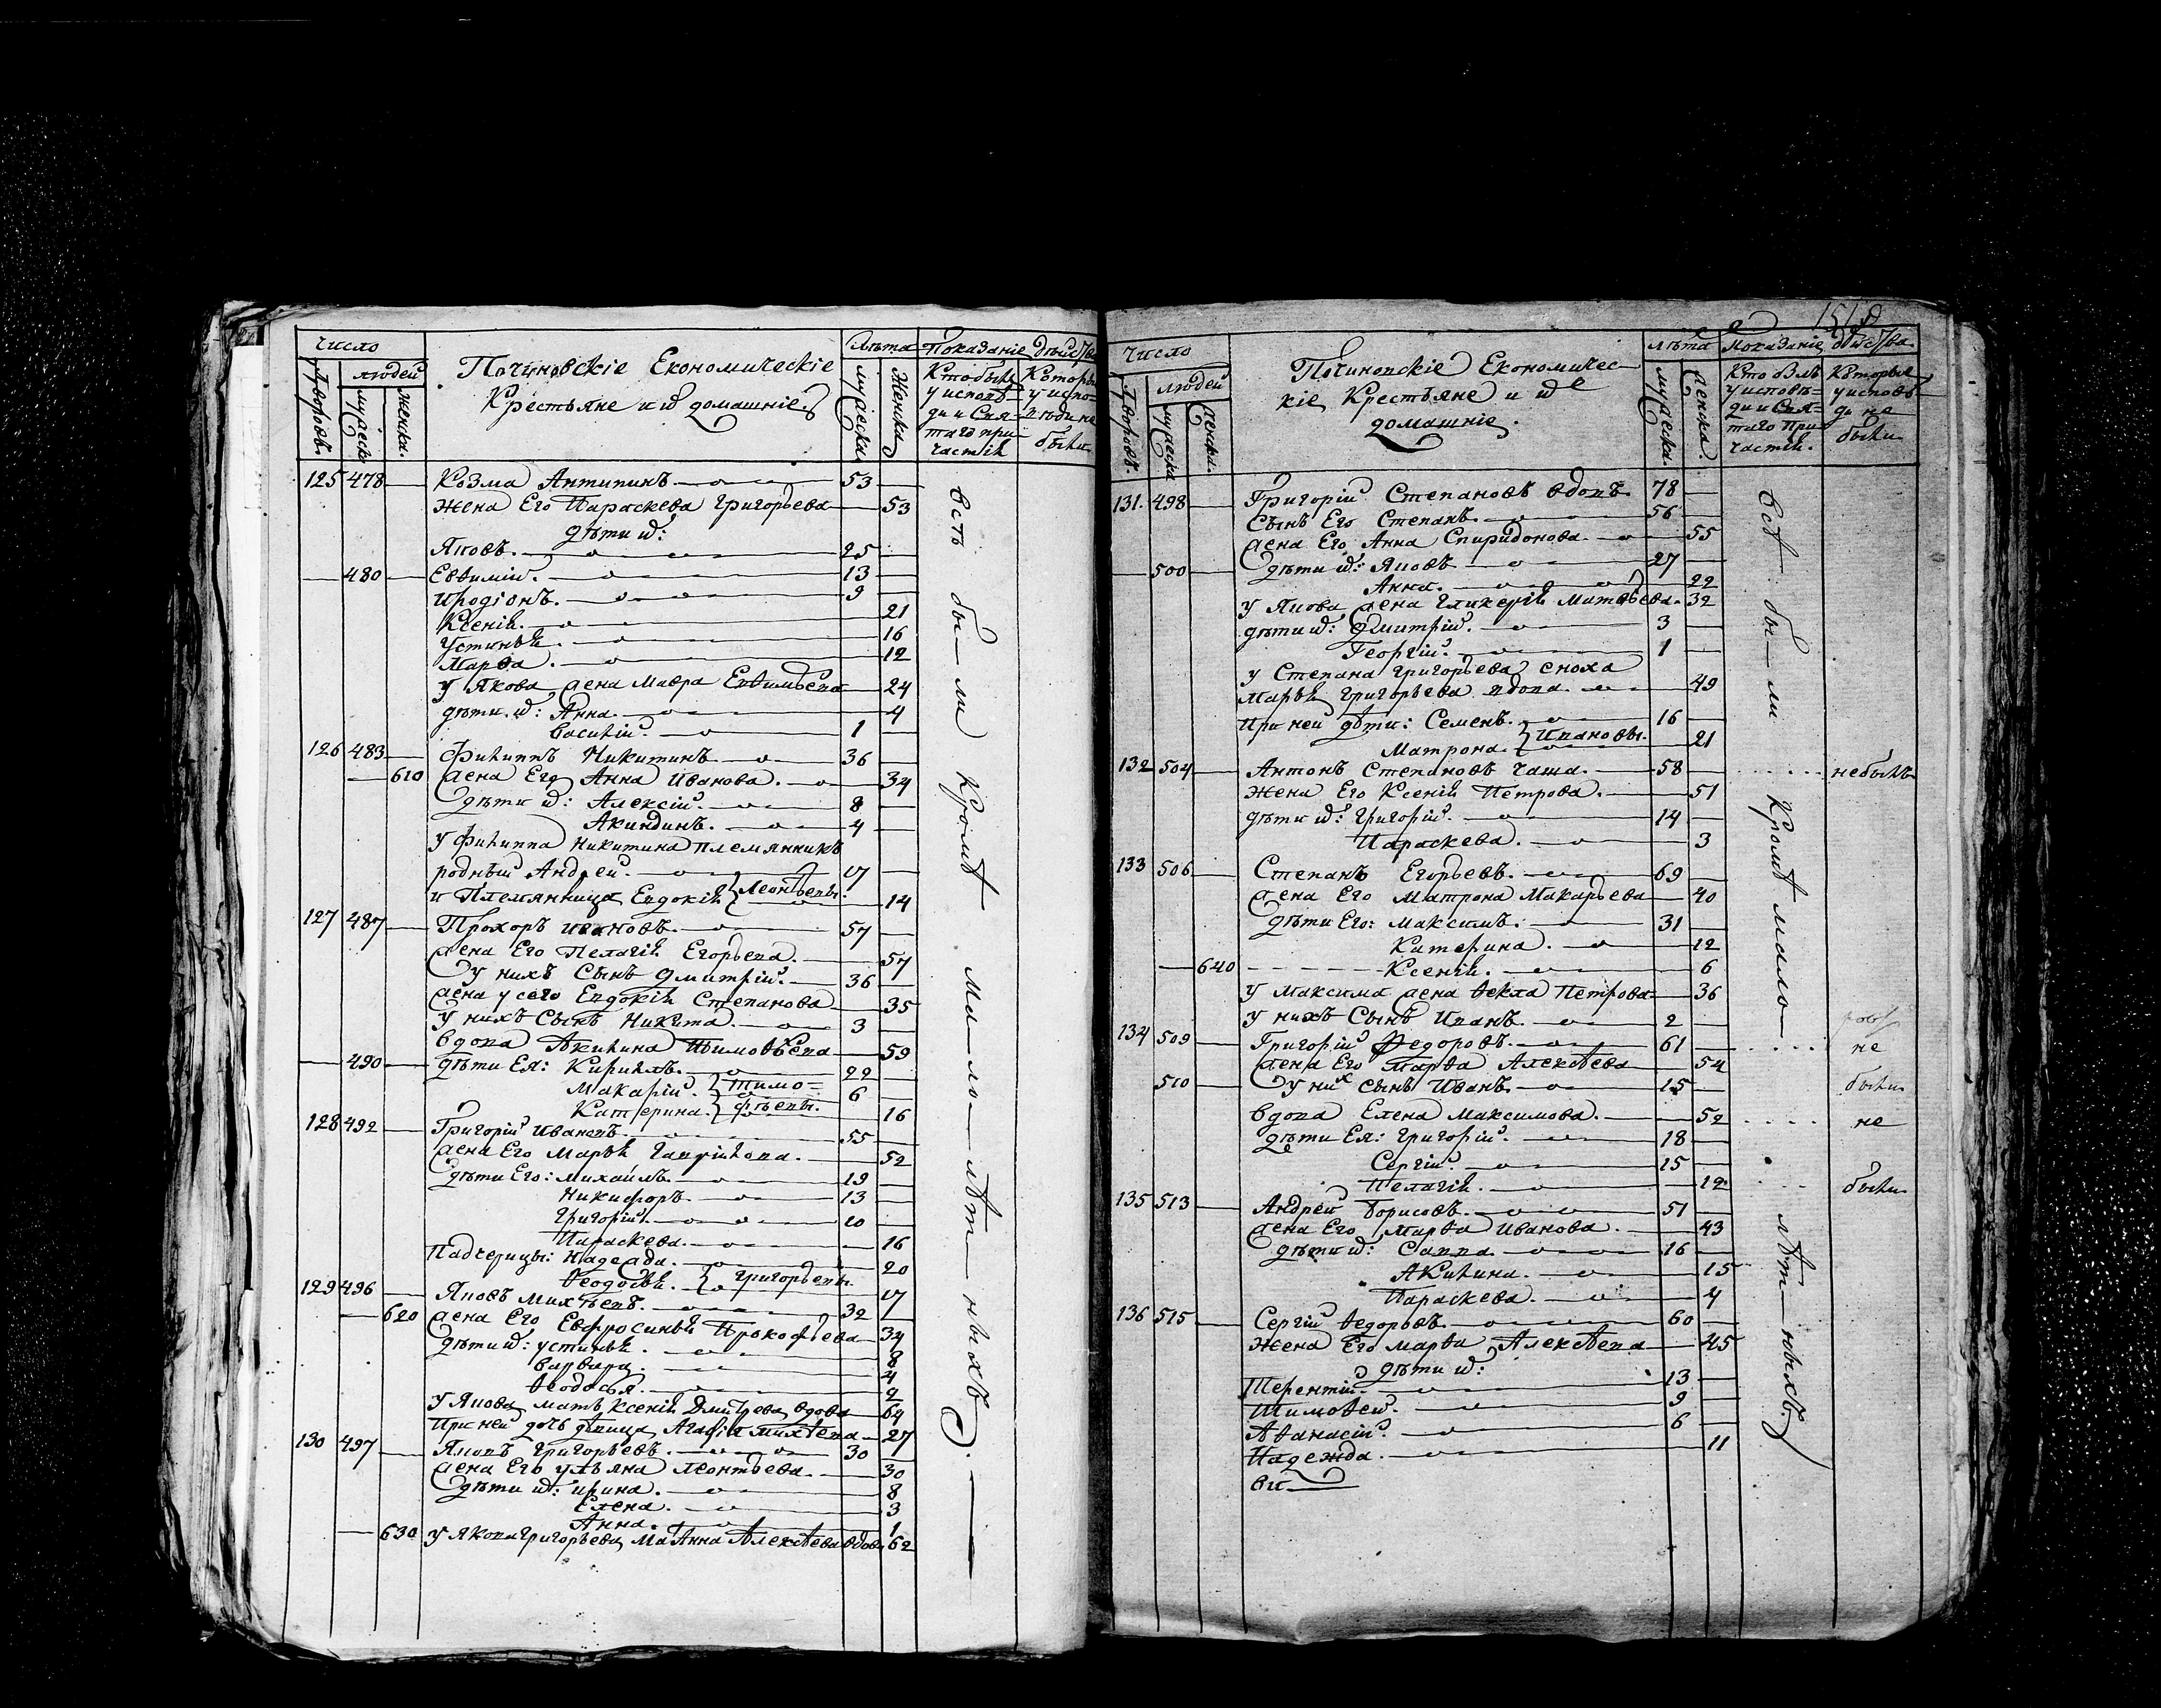 Число
Дворовъ.
людей
мужеск.
женска.
Починовскіе Економическіе
Крестьяне и ихъ домашніе
Лѣта
мужеска.
Женска.
Показаніе дѣйства
Кто были
у исповѣ-
ди и Свя-
таго при-
частія
Которы
у испо-
вѣди не
были
125 478 Козма Антипинъ 53
жена Его Параскева Григорьева 53
дѣти ихъ:
Яковъ. 25
480 Евѳимій. 13
Иродіонъ. 9
Ксенія. 21
Устинья. 16
Марѳа. 12
у Якова жена Мавра Евѳимьева 24
дѣти ихъ: Анна. 4
Василій. 1
126 483 Филиппъ Никитинъ 36
610 жена Его Анна Иванова. 34
дѣти ихъ: Алексій. 8
Акиндинъ. 4
у Филиппа Никитина племянникъ
родный Андрей. 17
и Племянница Евдокія Леонтьевы. 14
127 487 Прохоръ Ивановъ. 57
жена Его Пелагія Егорьева. 57
у нихъ Сынъ Дмитрій. 36
жена у сего Евдокія Степанова 35
у нихъ Сынъ Никита. 3
вдова Акилина Тимоѳѣева 59
490 дѣти Ея: Кирилъ. 22
Макарій. Тимо= 6
Катерина. фѣевы. 16
128 492 Григорій Ивановъ. 55
жена Его Марья Гаврилова. 52
дѣти Его: Михайлъ. 19
Никифоръ. 13
Григорій. 10
Параскева. 16
Падчерицы: Надежда. 20
Ѳеодосья. Григорьевы. 17
129 496 Яковъ Михѣевъ. 32
620 жена Его Евфросинья Прокофьева 34
дѣти ихъ: устинья. 8
варвара. 4
Ѳеодосья. 2
у Якова мать Ксенія Дмитрева вдова 64
При ней дочь дѣвица Агафія Михѣева 27
130 497 Яковъ Григорьевъ. 30
жена Его ульяна Леонтьева. 30
дѣти ихъ: ирина. 8
Елена. 3
Анна. 1
630 у Якова Григорьева Ма Анна Алексѣева вдов. 62
всѣ бы— ли Кромѣ ма—ло—лѣт—ныхъ.
151
Число
Дворовъ.
людей
мужеска
женска.
Починовскіе Економичес-
кіе Крестьяне и ихъ
домашніе.
лѣта
мужеска.
женска.
Показаніе дѣйства
Кто былъ
у исповѣ-
ди и Свя-
таго При-
частія.
Которые
у исповѣ-
ди не
были
131. 498 Григорій Степановъ вдовъ. 78
Сынъ Его Степанъ. 56
жена Его Анна Спиридонова. 55
500 дѣти ихъ: Яковъ 27
Анна. 22
у Якова жена Гликерія Матвѣева. 32
дѣти ихъ: Дмитрій. 3
Георгій. 1
у Степана Григорьева сноха
Марья Григорьева вдова. 49
При ней дѣти: Семенъ. 16
Матрона. Ивановы. 21
132 504 Антонъ Степановъ Чаша. 58 небылъ
жена Его Ксенія Петрова. 51
дѣти ихъ: Григорій. 14
Параскева. 3
133 506 Степанъ Егорьевъ. 69
жена Его Матрона Макарьева 40
дѣти Его: Максимъ. 31
Катерина. 12
640 Ксенія. 6
у Максима жена Ѳекла Петрова 36
у нихъ Сынъ Иванъ. 2
134 509 Григорій Федоровъ. 61 не
жена Его Марѳа Алексѣева 54
510 у них сынъ Иванъ. 15 были
вдова Елена Максимова. 52 не
дѣти Ея: Григорій. 18
Сергій. 15
Пелагія. 12 были
135 513 Андрей Борисовъ. 51
жена Его Марѳа Иванова. 43
дѣти ихъ: Савва. 16
Акилина. 15
Параскева. 4
136 515 Сергій Ѳедорьвъ. 60
жена Его Марѳа Алексѣева 45
дѣти ихъ:
Терентій. 13
Тимоѳей. 9
Аѳанасій. 6
Надежда. 11
всѣ бы— ли Кромѣ мало— лѣт— ныхъ